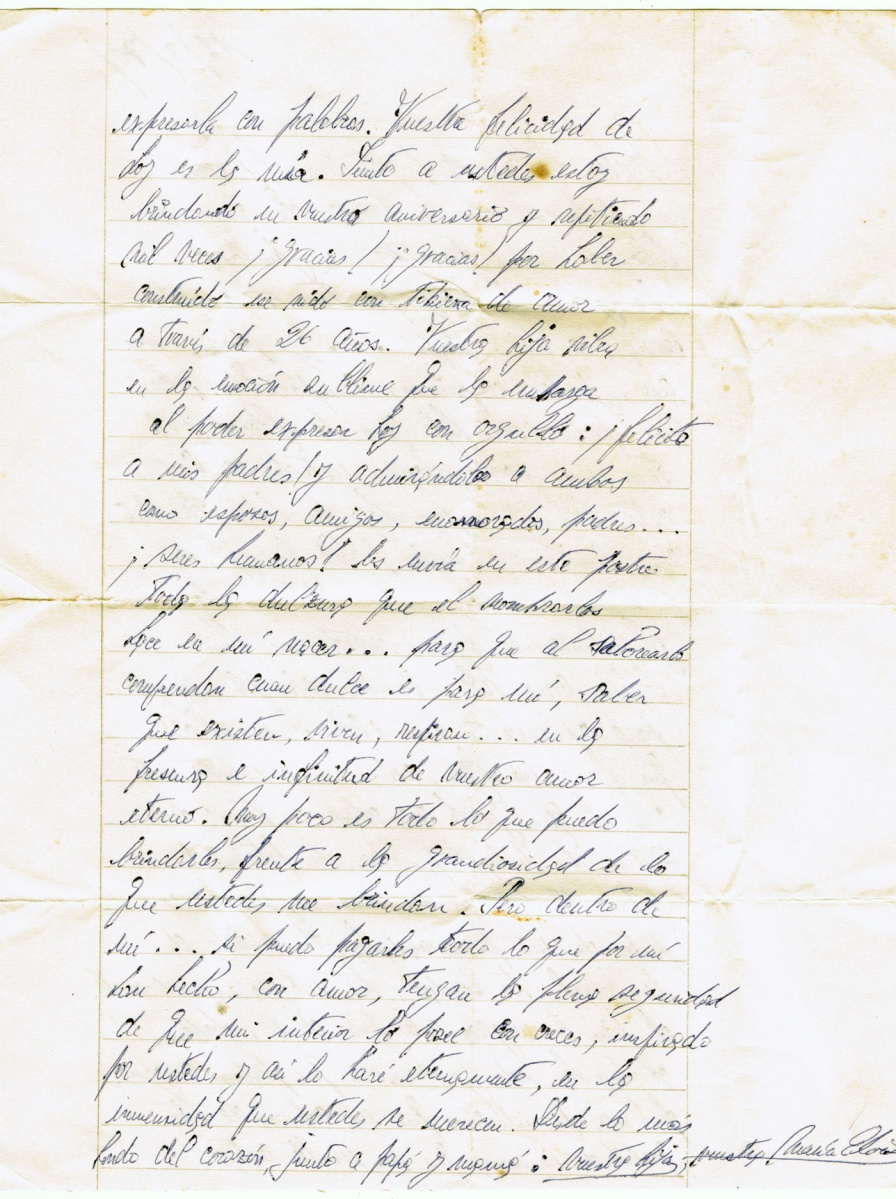 expresarla con palabras. Vuestra felicidad de
hoy es la mía. Junto a ustedes estoy
brindando en vuestro aniversario y repitiendo
mil veces ¡gracias! ¡gracias! por haber
construido ese nido con tibieza de amor
a través de 26 años. Vuestra hija vibra
en la emoción sublime que la embarga
al poder expresar hoy con orgullo: ¡felicito
a mis padres! y admirándolos a ambos
como esposos, amigos, enamorados, padres...
¡seres humanos! les envía en este postre
toda la dulzura que el nombrarlos
hace en mí nacer... para que al saborearlo
comprendan cuan dulce es para mí, saber
que existen, viven, respiran... en la
frescura e infinitud de vuestro amor
eterno. Muy poco es todo lo que puedo
brindarles, frente a la grandiosidad de lo
que ustedes me brindan. Pero dentro de
mí... si puedo pagarles todo lo que por mí
han hecho, con amor, tengan la plena seguridad
de que mi interior lo posee con creces, inspirado
por ustedes y así lo haré eternamente, en la
inmensidad que ustedes se merecen. Desde lo más
hondo del corazón, junto a papá y mamá: vuestra hija, vuestra María